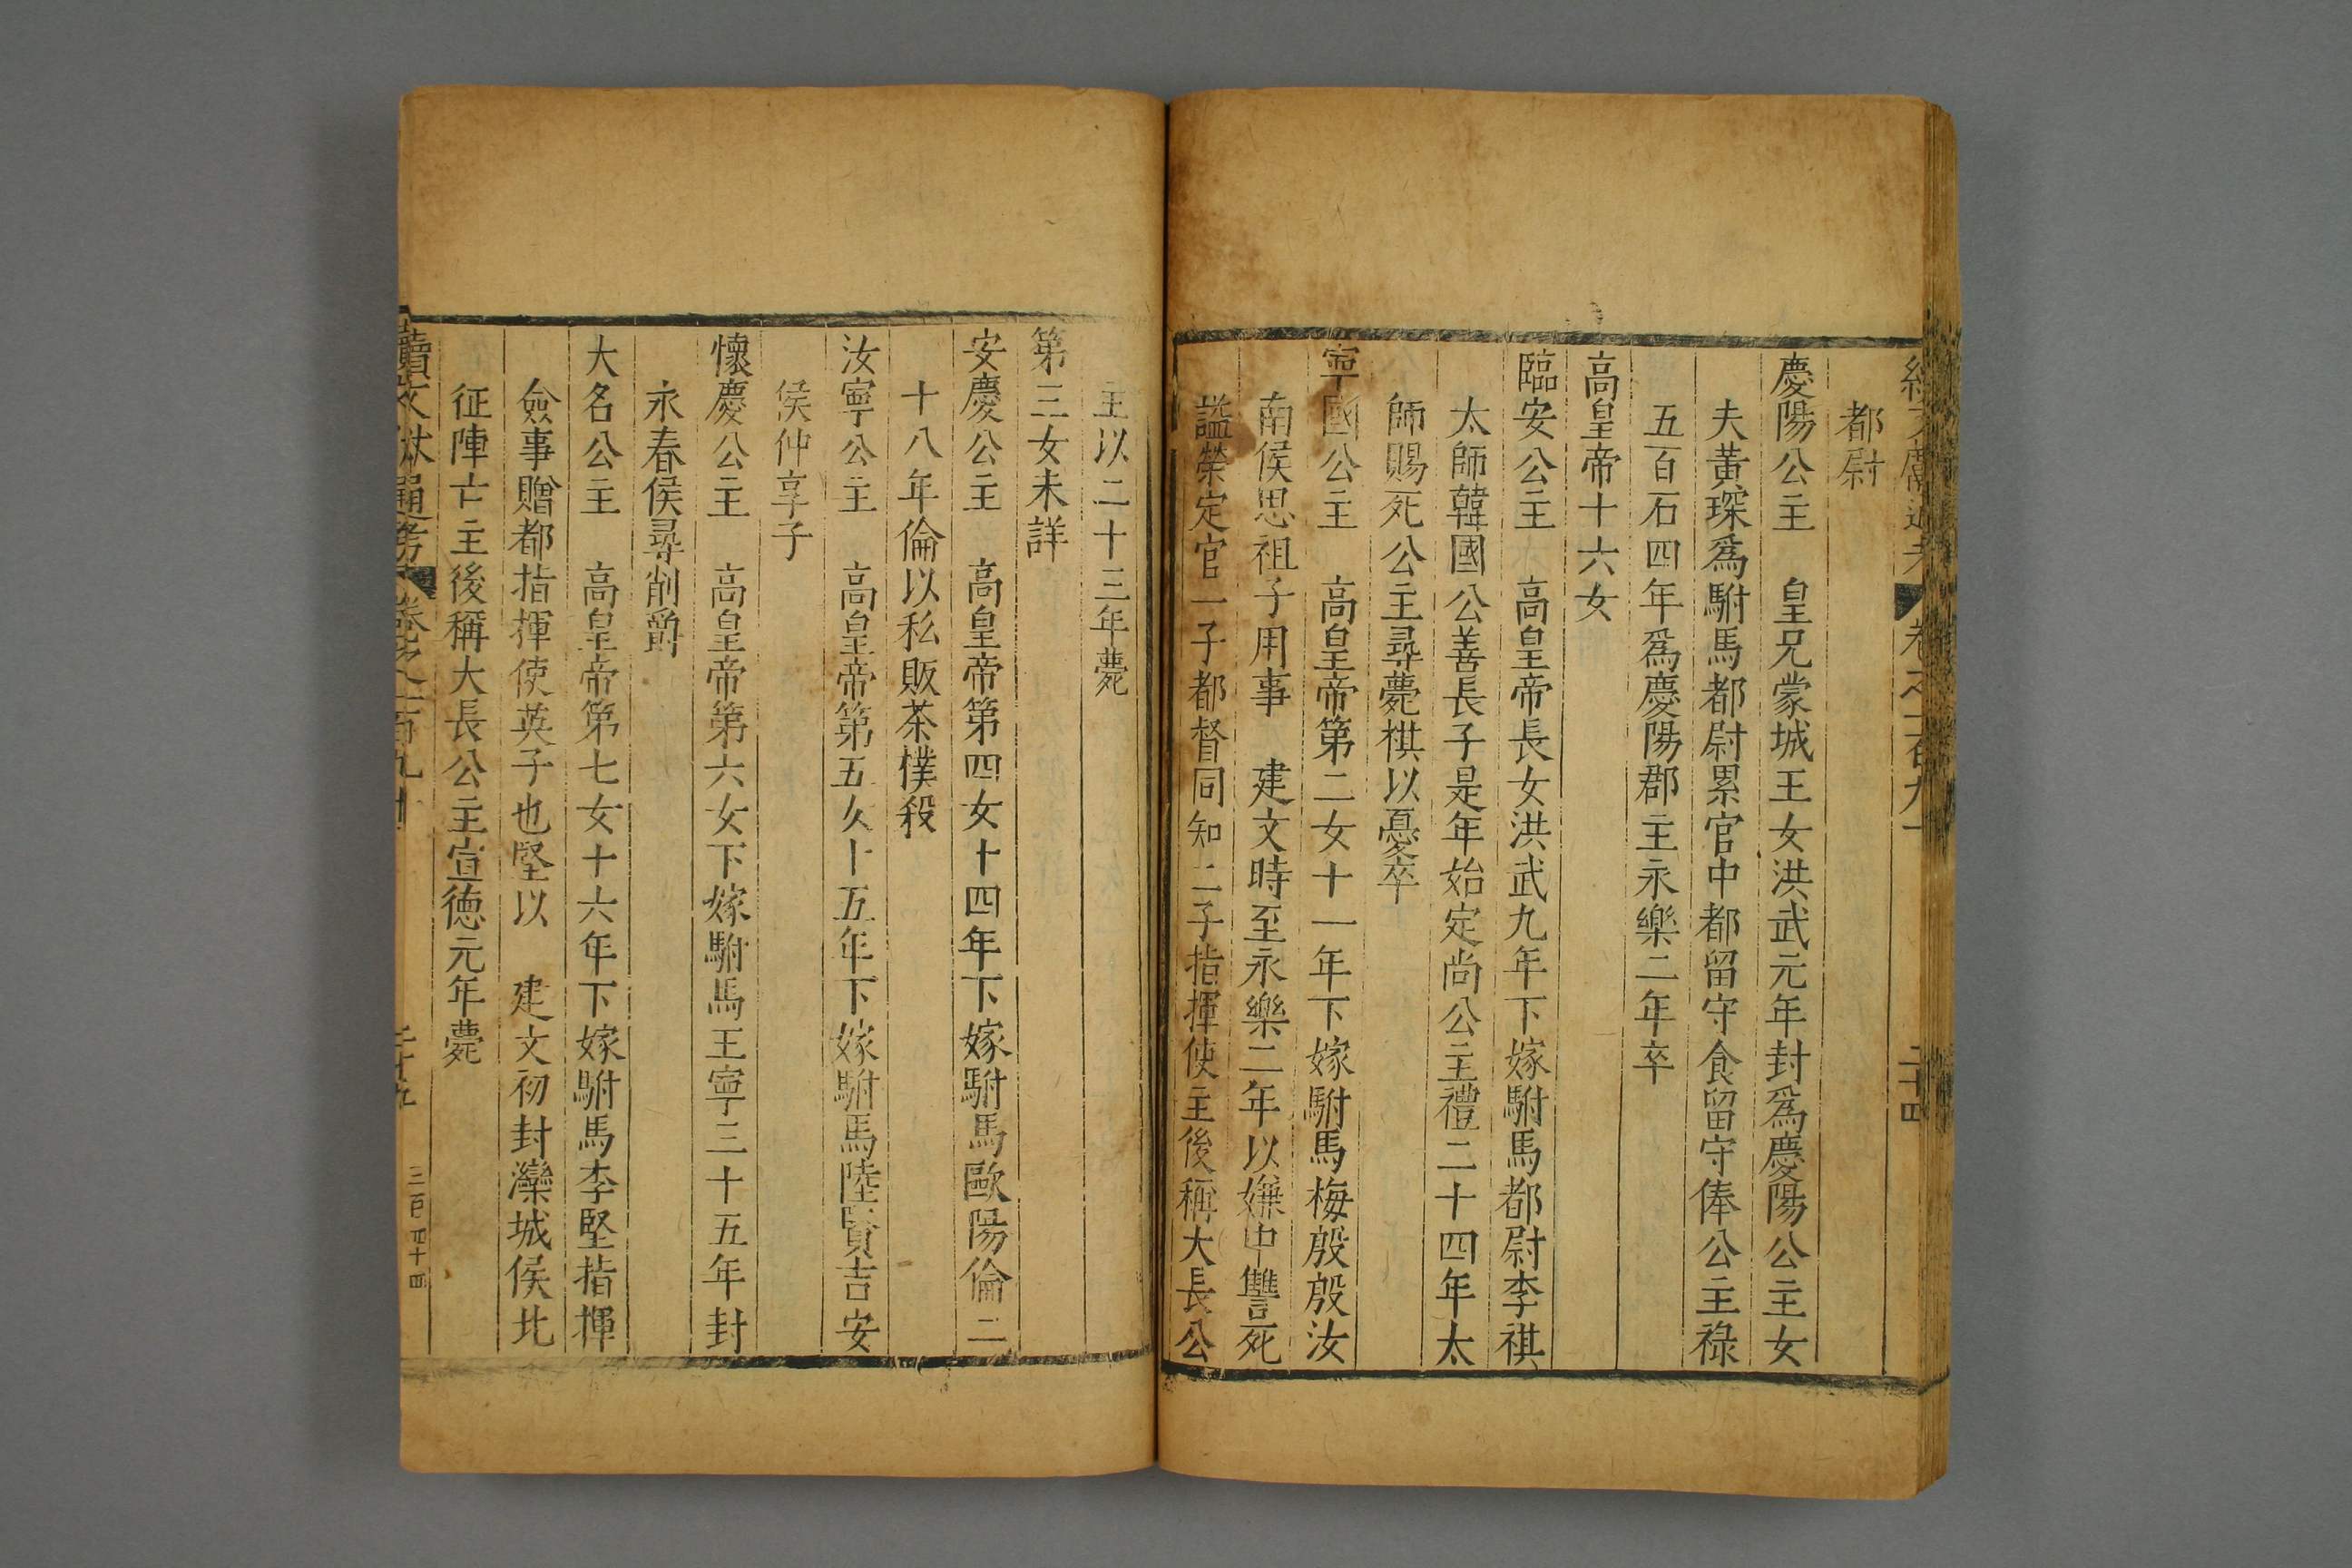 都尉
慶陽公主　皇兄蒙城王女洪武元年封爲慶陽公主女
夫黃琛爲駙馬都尉累官中都留守食留守俸公主祿
五百石四年爲慶陽郡主永樂二年卒
高皇帝十六女
臨安公主　高皇帝長女洪武九年下嫁駙馬都尉李祺
太師韓國公善長子是年始定尚公主禮二十四年太
師賜死公主尋薨祺以憂卒
寧國公主　高皇帝第二女十一年下嫁駙馬梅殷殷汝
南侯思祖子用事　建文時至永樂二年以嫌中讐死
謚榮定官一子都督同知二子指揮使主後稱大長公
主以二十三年薨
第三女未詳
安慶公主　高皇帝第四女十四年下嫁駙馬歐陽倫二
十八年倫以私販茶撲殺
汝寧公主　高皇帝第五女十五年下嫁駙馬陸賢吉安
侯仲亨子
懷慶公主　高皇帝第六女下嫁駙馬王寧三十五年封
永春侯尋削爵
大名公主　高皇帝第七女十六年下嫁駙馬李堅指揮
僉事贈都指揮使英子也堅以　建文初封灤城侯北
征陣亡主後稱大長公主宣德元年薨
續文獻通考　卷之二百九
二十五
三百四十四